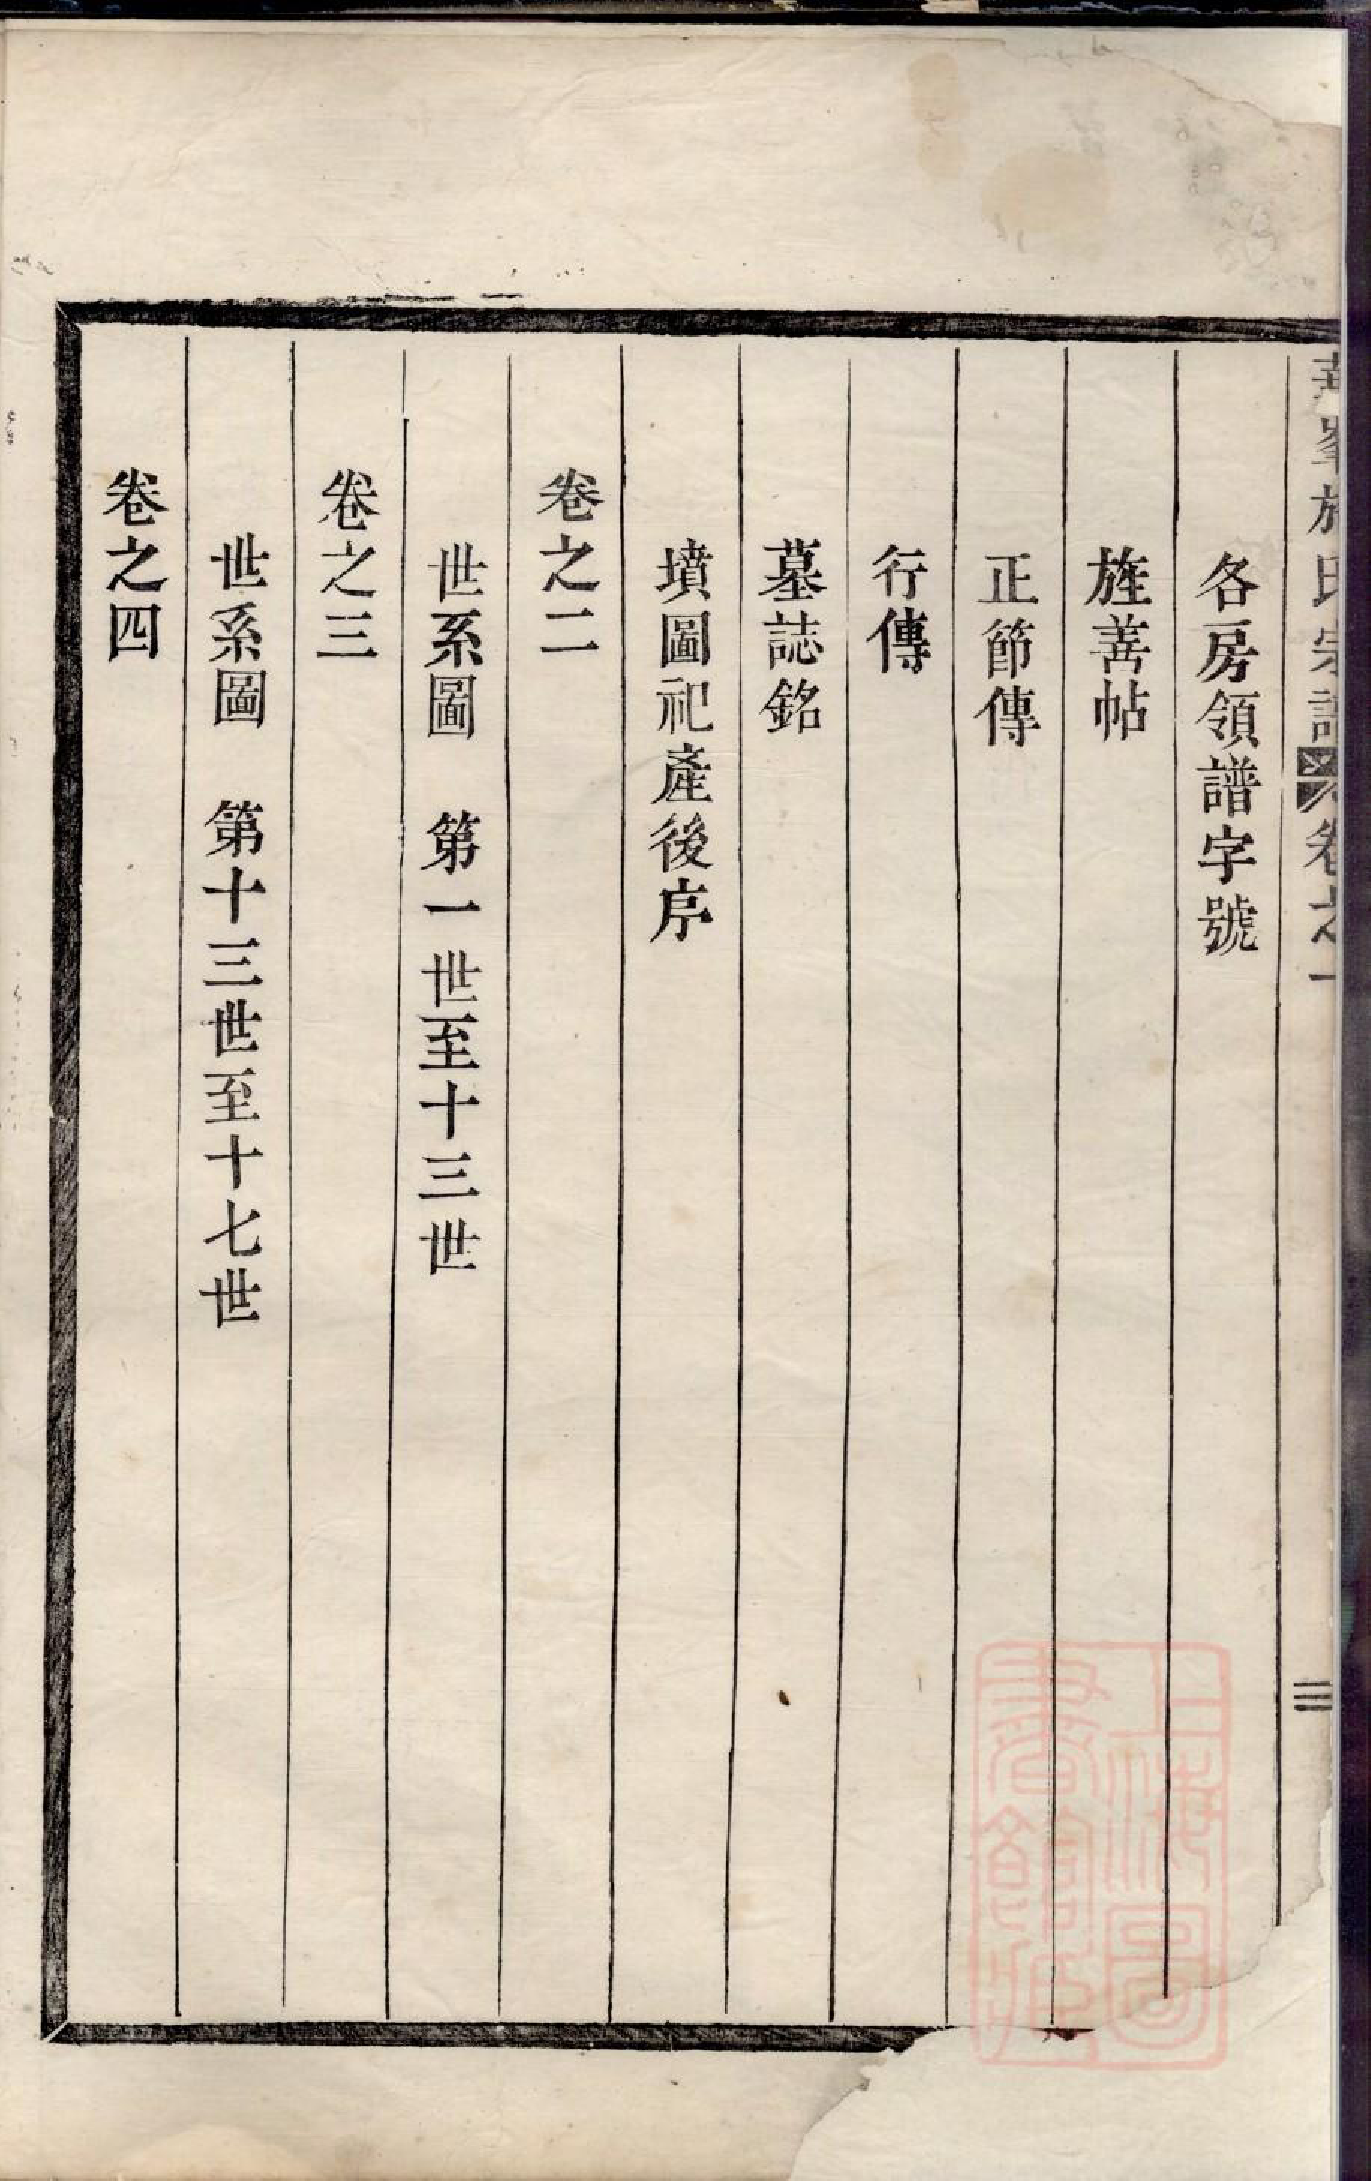 氏宗譜 卷之一
三
各房領譜字號
旌善帖
正節傳
行傳
墓誌銘
墳圖祀產後序
卷之二
世系圖　第一世至十三世
卷之三
世系圖　第十三世至十七世
卷之四
上海圖書館藏